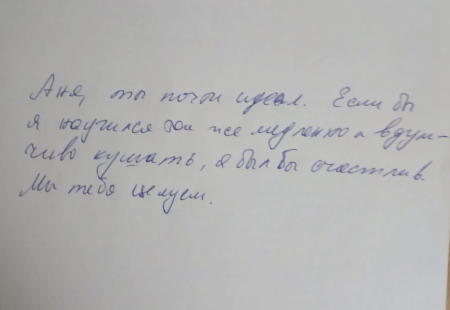 Аня, ты почти идеал. Если бы
я научился так же медленно и вдум-
чиво кушать, я был бы счастлив.
Мы тебя целуем.